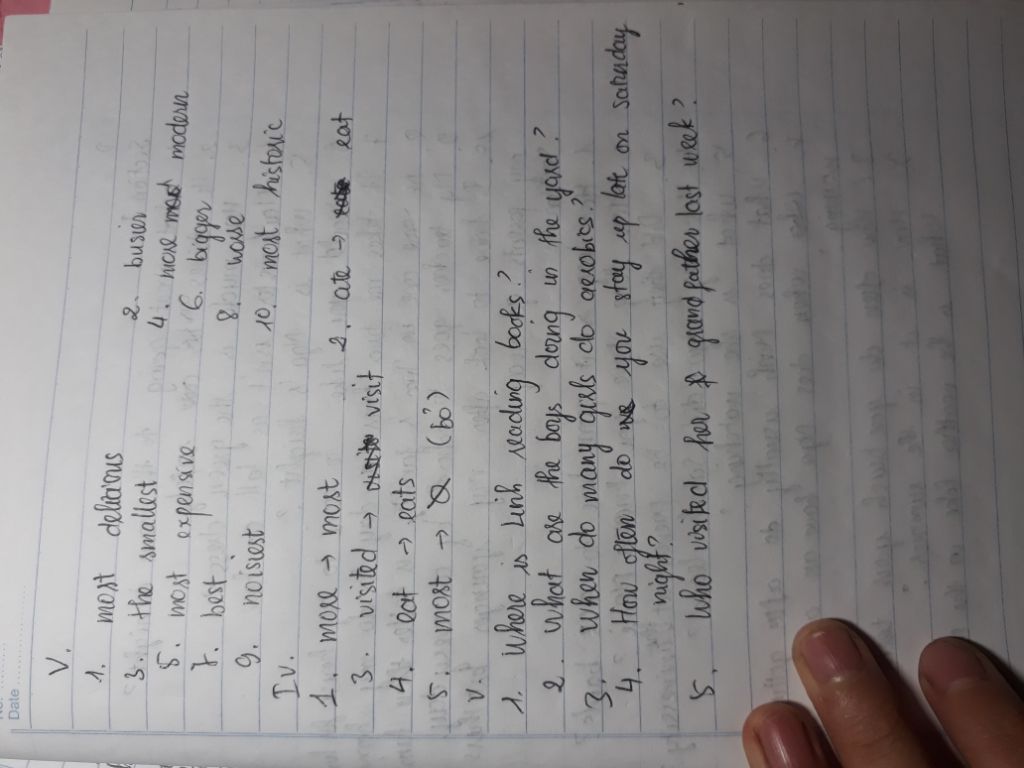 Date
V.
1. most delicious 2. busier
3. the smallest 4. more modern
5. most expensive 6. bigger
7. best 8. worse
9. noisiest 10. most historic
IV.
1. more → most 2. ate → eat
3. visited → visit
4. eat → eats
5. most → Ø (bỏ)
V.
1. Where is Linh reading books?
2. What are the boys doing in the yard?
3. When do many girls do aerobics?
4. How often do you stay up late on Saturday
night?
5. Who visited her grandfather last week?